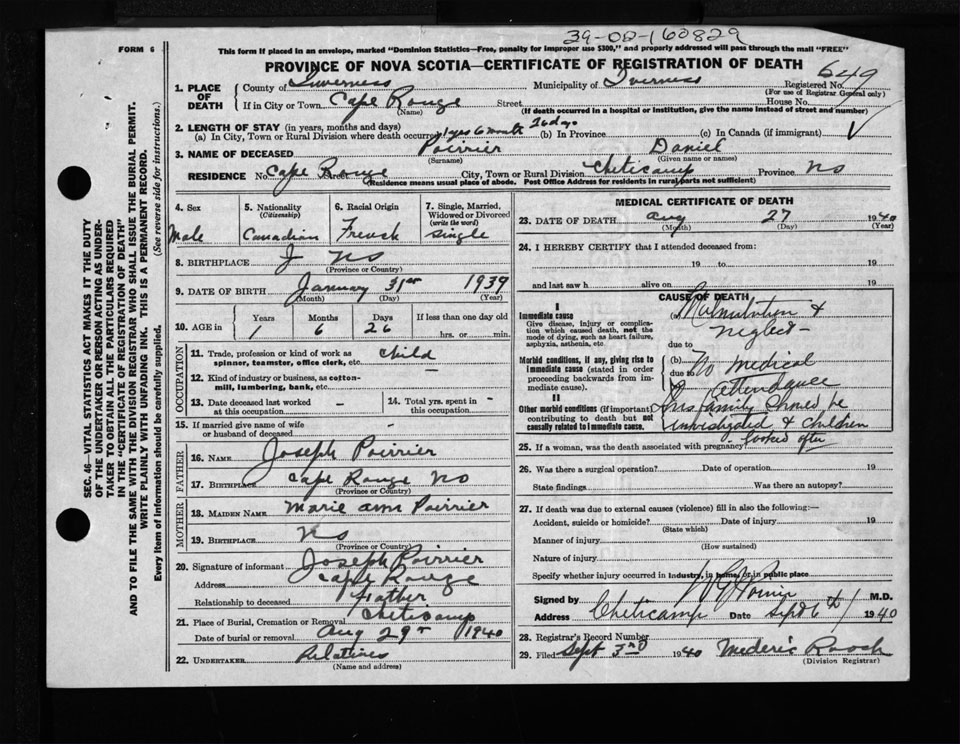 39-02-160829
FORM 6
This form if placed in an envelope, marked "Dominion Statistics—Free, penalty for improper use $300," and properly addressed will pass through the mail "FREE"
PROVINCE OF NOVA SCOTIA—CERTIFICATE OF REGISTRATION OF DEATH
649
1. PLACE OF DEATH
County of Inverness Municipality of Inverness Registered No.
(For use of Registrar General only)
If in City or Town Cape Rouge Street House No.
(Name) (If death occurred in a hospital or institution, give the name instead of street and number)
2. LENGTH OF STAY (in years, months and days)
(a) In City, Town or Rural Division where death occurred 1 yrs 6 months 26 days (b) In Province (c) In Canada (if immigrant)
3. NAME OF DECEASED Poirrier Daniel
(Surname) (Given name or names)
RESIDENCE No. Cape Rouge Street City, Town or Rural Division Cheticamp Province NS
(Residence means usual place of abode. Post Office Address for residents in rural parts not sufficient)
4. Sex
Male
5. Nationality
(Citizenship)
Canadian
6. Racial Origin
French
7. Single, Married, Widowed or Divorced
(write the word)
Single
8. BIRTHPLACE NS
(Province or Country)
9. DATE OF BIRTH January 31st 1939
(Month) (Day) (Year)
10. AGE in
Years Months Days If less than one day old
1 6 26 hrs. or min.
OCCUPATION
11. Trade, profession or kind of work as spinner, teamster, office clerk, etc. Child
12. Kind of industry or business, as cotton-mill, lumbering, bank, etc.
13. Date deceased last worked at this occupation -
14. Total yrs. spent in this occupation -
15. If married give name of wife or husband of deceased
FATHER
16. NAME Joseph Poirrier
17. BIRTHPLACE Cape Rouge NS
(Province or Country)
MOTHER
18. MAIDEN NAME Marie Ann Poirrier
19. BIRTHPLACE NS
(Province or Country)
20. Signature of informant Joseph Poirrier
Address Cape Rouge
Relationship to deceased Father
21. Place of Burial, Cremation or Removal Cheticamp
Date of burial or removal Aug 29th 1940
22. UNDERTAKER Relatives
(Name and address)
MEDICAL CERTIFICATE OF DEATH
23. DATE OF DEATH Aug 27 1940
(Month) (Day) (Year)
24. I HEREBY CERTIFY that I attended deceased from:
19 to 19
and last saw h alive on 19
CAUSE OF DEATH
I
Immediate cause
Give disease, injury or complication which caused death, not the mode of dying, such as heart failure, asphyxia, asthenia, etc.
Malnutrition & Neglect
due to
Morbid conditions, if any, giving rise to immediate cause (stated in order proceeding backwards from immediate cause).
(b) No medical
due to attendance
II
Other morbid conditions (if important) contributing to death but not causally related to immediate cause.
This family should be
investigated & children
looked after
25. If a woman, was the death associated with pregnancy?
26. Was there a surgical operation? Date of operation 19
State findings Was there an autopsy?
27. If death was due to external causes (violence) fill in also the following:—
Accident, suicide or homicide? Date of injury 19
(State which)
Manner of injury
(How sustained)
Nature of injury
Specify whether injury occurred in industry, in home, or in public place
Signed by M.D.
Address Cheticamp Date Sept 6th 1940
28. Registrar's Record Number
29. Filed Sept 3rd 1940 Mederic Roach
(Division Registrar)
SEC. 46—VITAL STATISTICS ACT MAKES IT THE DUTY
OF THE UNDERTAKER OR PERSON ACTING AS UNDER-
TAKER TO OBTAIN ALL THE PARTICULARS REQUIRED
IN THE "CERTIFICATE OF REGISTRATION OF DEATH"
AND TO FILE THE SAME WITH THE DIVISION REGISTRAR WHO SHALL ISSUE THE BURIAL PERMIT.
WRITE PLAINLY WITH UNFADING INK. THIS IS A PERMANENT RECORD.
Every item of information should be carefully supplied. (See reverse side for instructions.)